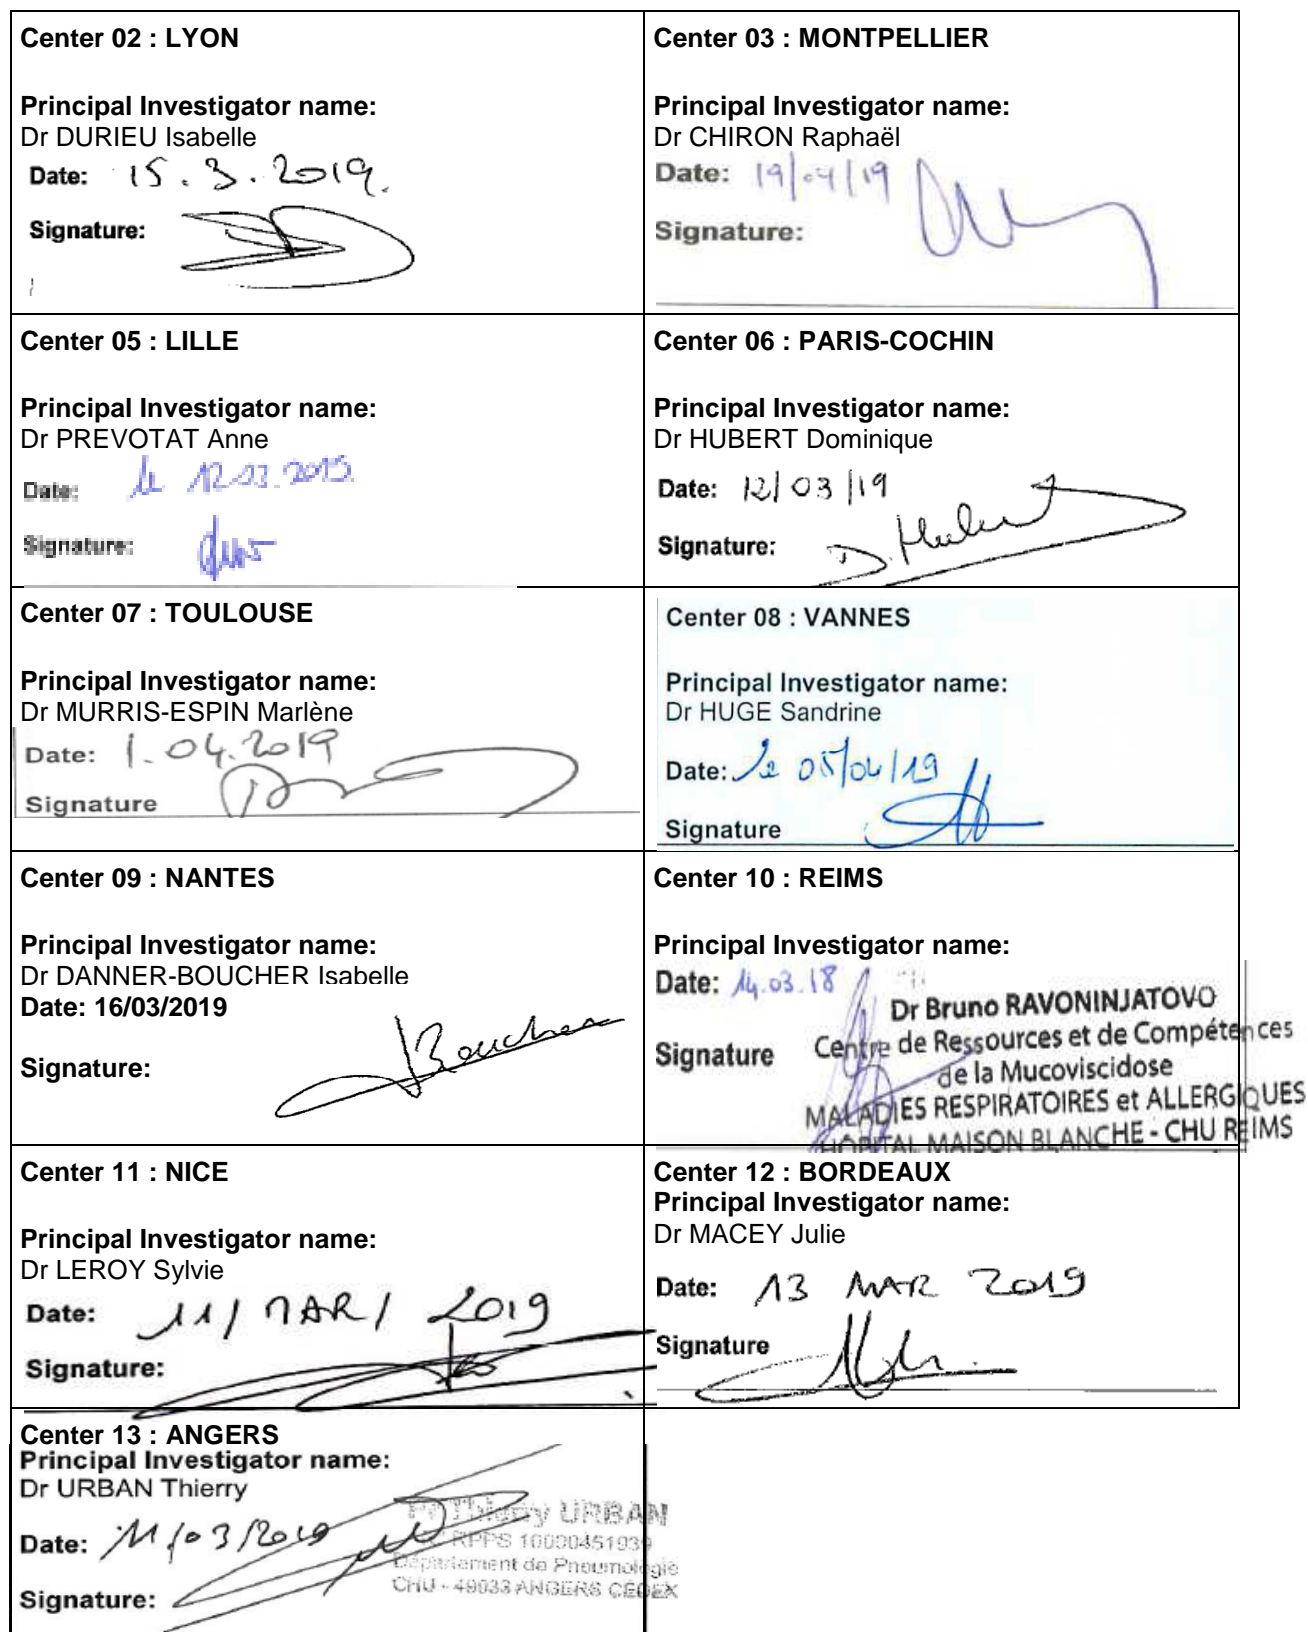 Center 02 : LYON
Principal Investigator name:
Dr DURIEU Isabelle
Date: 15.3.2019.
Signature:
Center 03 : MONTPELLIER
Principal Investigator name:
Dr CHIRON Raphaël
Date: 19/04/19
Signature:
Center 05 : LILLE
Principal Investigator name:
Dr PREVOTAT Anne
Date: le 12.03.2019.
Signature:
Center 06 : PARIS-COCHIN
Principal Investigator name:
Dr HUBERT Dominique
Date: 12/03/19
Signature: D. Hubert
Center 07 : TOULOUSE
Principal Investigator name:
Dr MURRIS-ESPIN Marlène
Date: 1.04.2019
Signature
Center 08 : VANNES
Principal Investigator name:
Dr HUGE Sandrine
Date: le 05/04/19
Signature
Center 09 : NANTES
Principal Investigator name:
Dr DANNER-BOUCHER Isabelle
Date: 16/03/2019
Signature: Boucher
Center 10 : REIMS
Principal Investigator name:
Date: 14.03.18
Signature
Dr Bruno RAVONINJATOVO
Centre de Ressources et de Compétences
de la Mucoviscidose
MALADIES RESPIRATOIRES et ALLERGIQUES
HÔPITAL MAISON BLANCHE - CHU REIMS
Center 11 : NICE
Principal Investigator name:
Dr LEROY Sylvie
Date: 11/MAR/2019
Signature:
Center 12 : BORDEAUX
Principal Investigator name:
Dr MACEY Julie
Date: 13 MAR 2019
Signature
Center 13 : ANGERS
Principal Investigator name:
Dr URBAN Thierry
Date: 11/03/2019
Signature:
Pr Thierry URBAN
RPPS 10000451939
Département de Pneumologie
CHU - 49033 ANGERS CEDEX